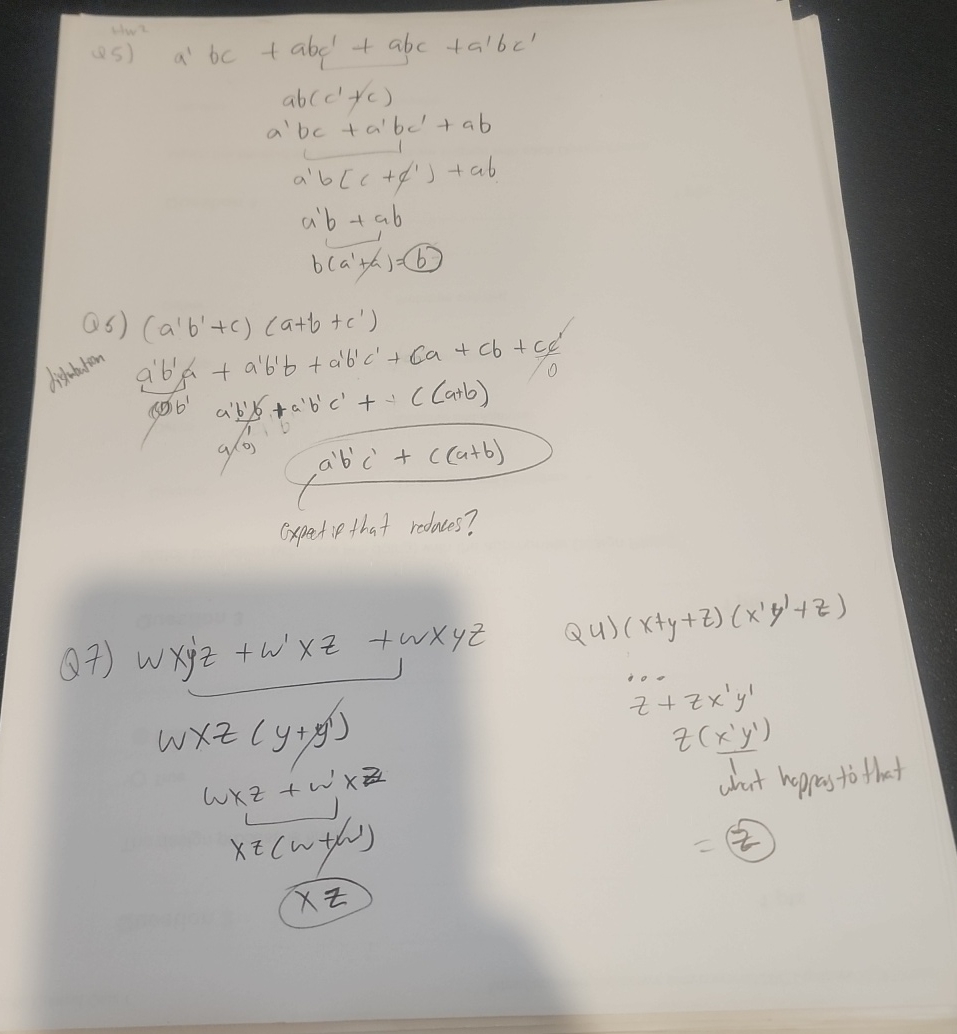 HW2
Q5) a' bc + abc' + abc + a'bc'
ab(c'+c)
a'bc + a'bc' + ab
a'b[c + c') + ab
a'b + ab
b(a'+a)=b
Q6) (a'b'+c) (a+b+c')
distribution
a'b'a + a'b'b + a'b'c' + Ca + cb + cc'
0
(0)b' a'b'b + a'b'c' + C(a+b)
a'(0) b
a'b'c' + C(a+b)
expect if that reduces?
Q7) wxy'z + w'xz + wxyz
wxz (y+y')
wxz + w'xz
xz(w+w')
xz
Q4) (x+y+z) (x'y'+z)
...
z + zx'y'
z(x'y')
what happens to that
= z